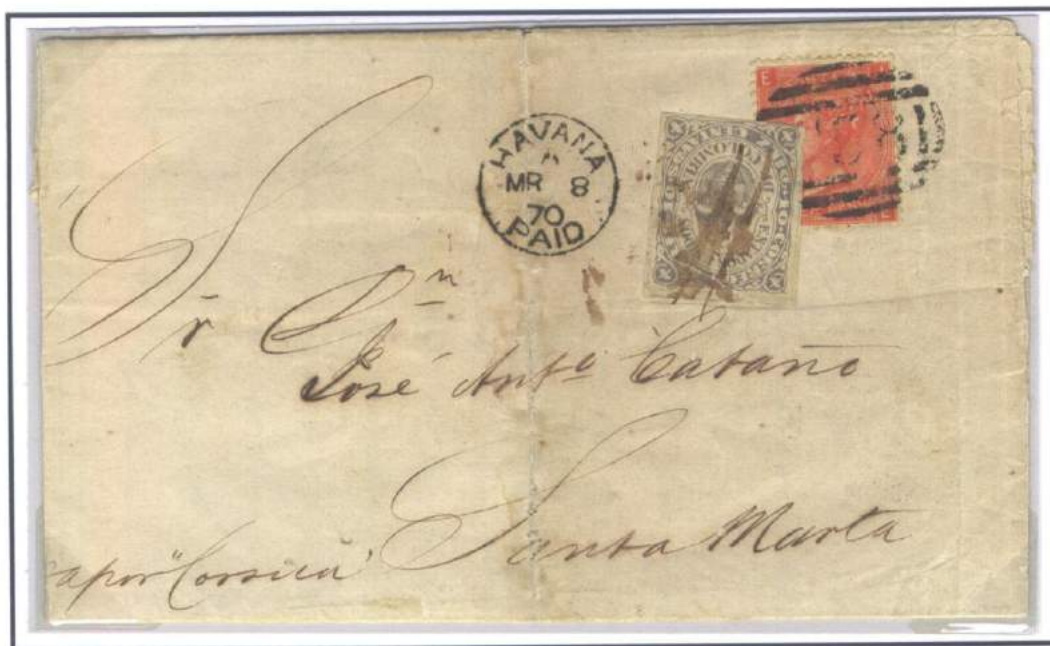 HAVANA
MR 8
70
PAID
E
Sr Dn
José Anto Cataño
Santa Marta
vapor "Corsica"